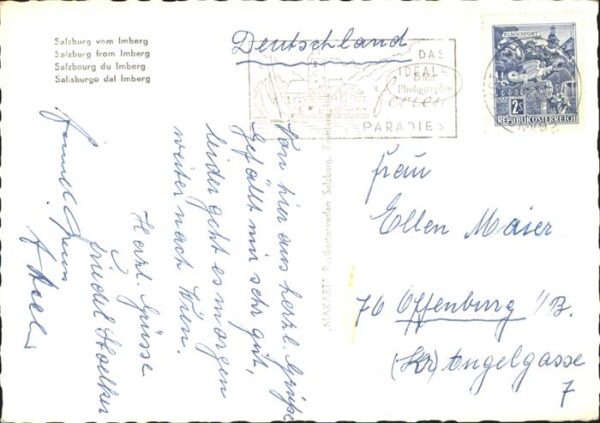 Salzburg vom Imberg
Salzburg from Imberg
Salzbourg du Imberg
Salisburgo dal Imberg
Deutschland
DAS
IDEALE
Photographie
ferien
PARADIES
KLAGENFURT
2S
REPUBLIK ÖSTERREICH
Von hier aus herzl. Grüße
Gefällt mir sehr gut,
leider geht es morgen
weiter nach Wien.
Herzl. Grüsse
Frau
Ellen Maier
76 Offenburg i/B.
Angelgasse
7